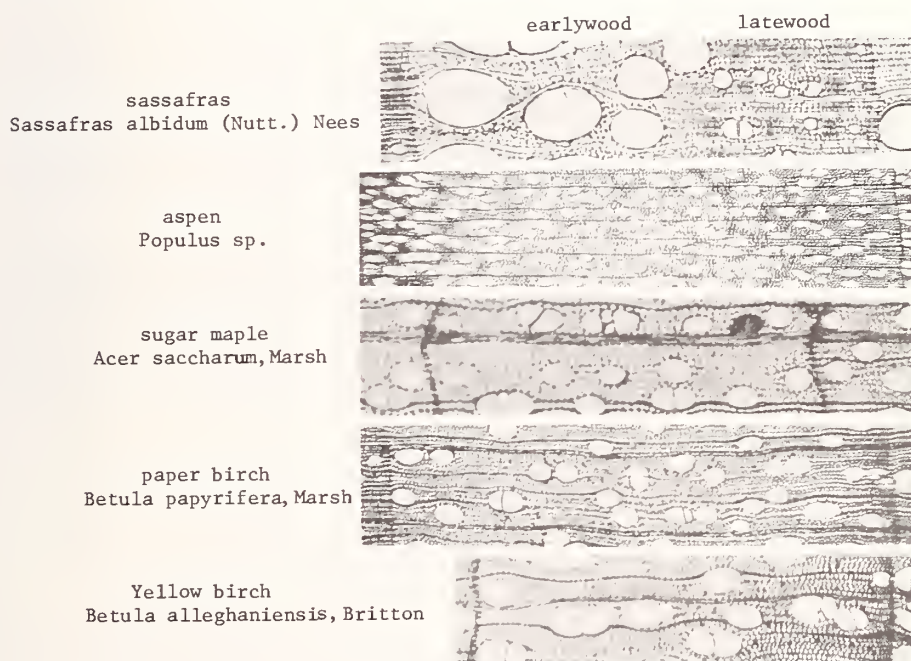 earlywood latewood
sassafras
Sassafras albidum (Nutt.) Nees
aspen
Populus sp.
sugar maple
Acer saccharum, Marsh
paper birch
Betula papyrifera, Marsh
Yellow birch
Betula alleghaniensis, Britton